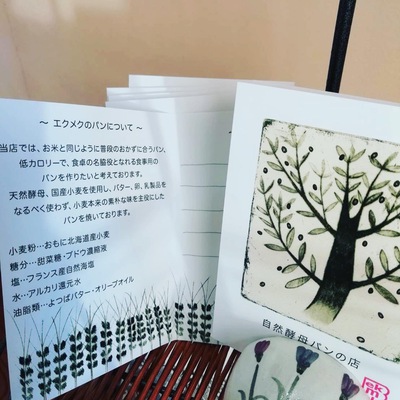 ～ エクメクのパンについて ～
当店では、お米と同じように普段のおかずに合うパン、
低カロリーで、食卓の名脇役となれる食事用の
パンを作りたいと考えております。
天然酵母、国産小麦を使用し、バター、卵、乳製品を
なるべく使わず、小麦本来の素朴な味を主役にした
パンを焼いております。
小麦粉…おもに北海道産小麦
糖分…甜菜糖・ブドウ濃縮液
塩…フランス産自然海塩
水…アルカリ還元水
油脂類…よつばバター・オリーブオイル
自然酵母パンの店